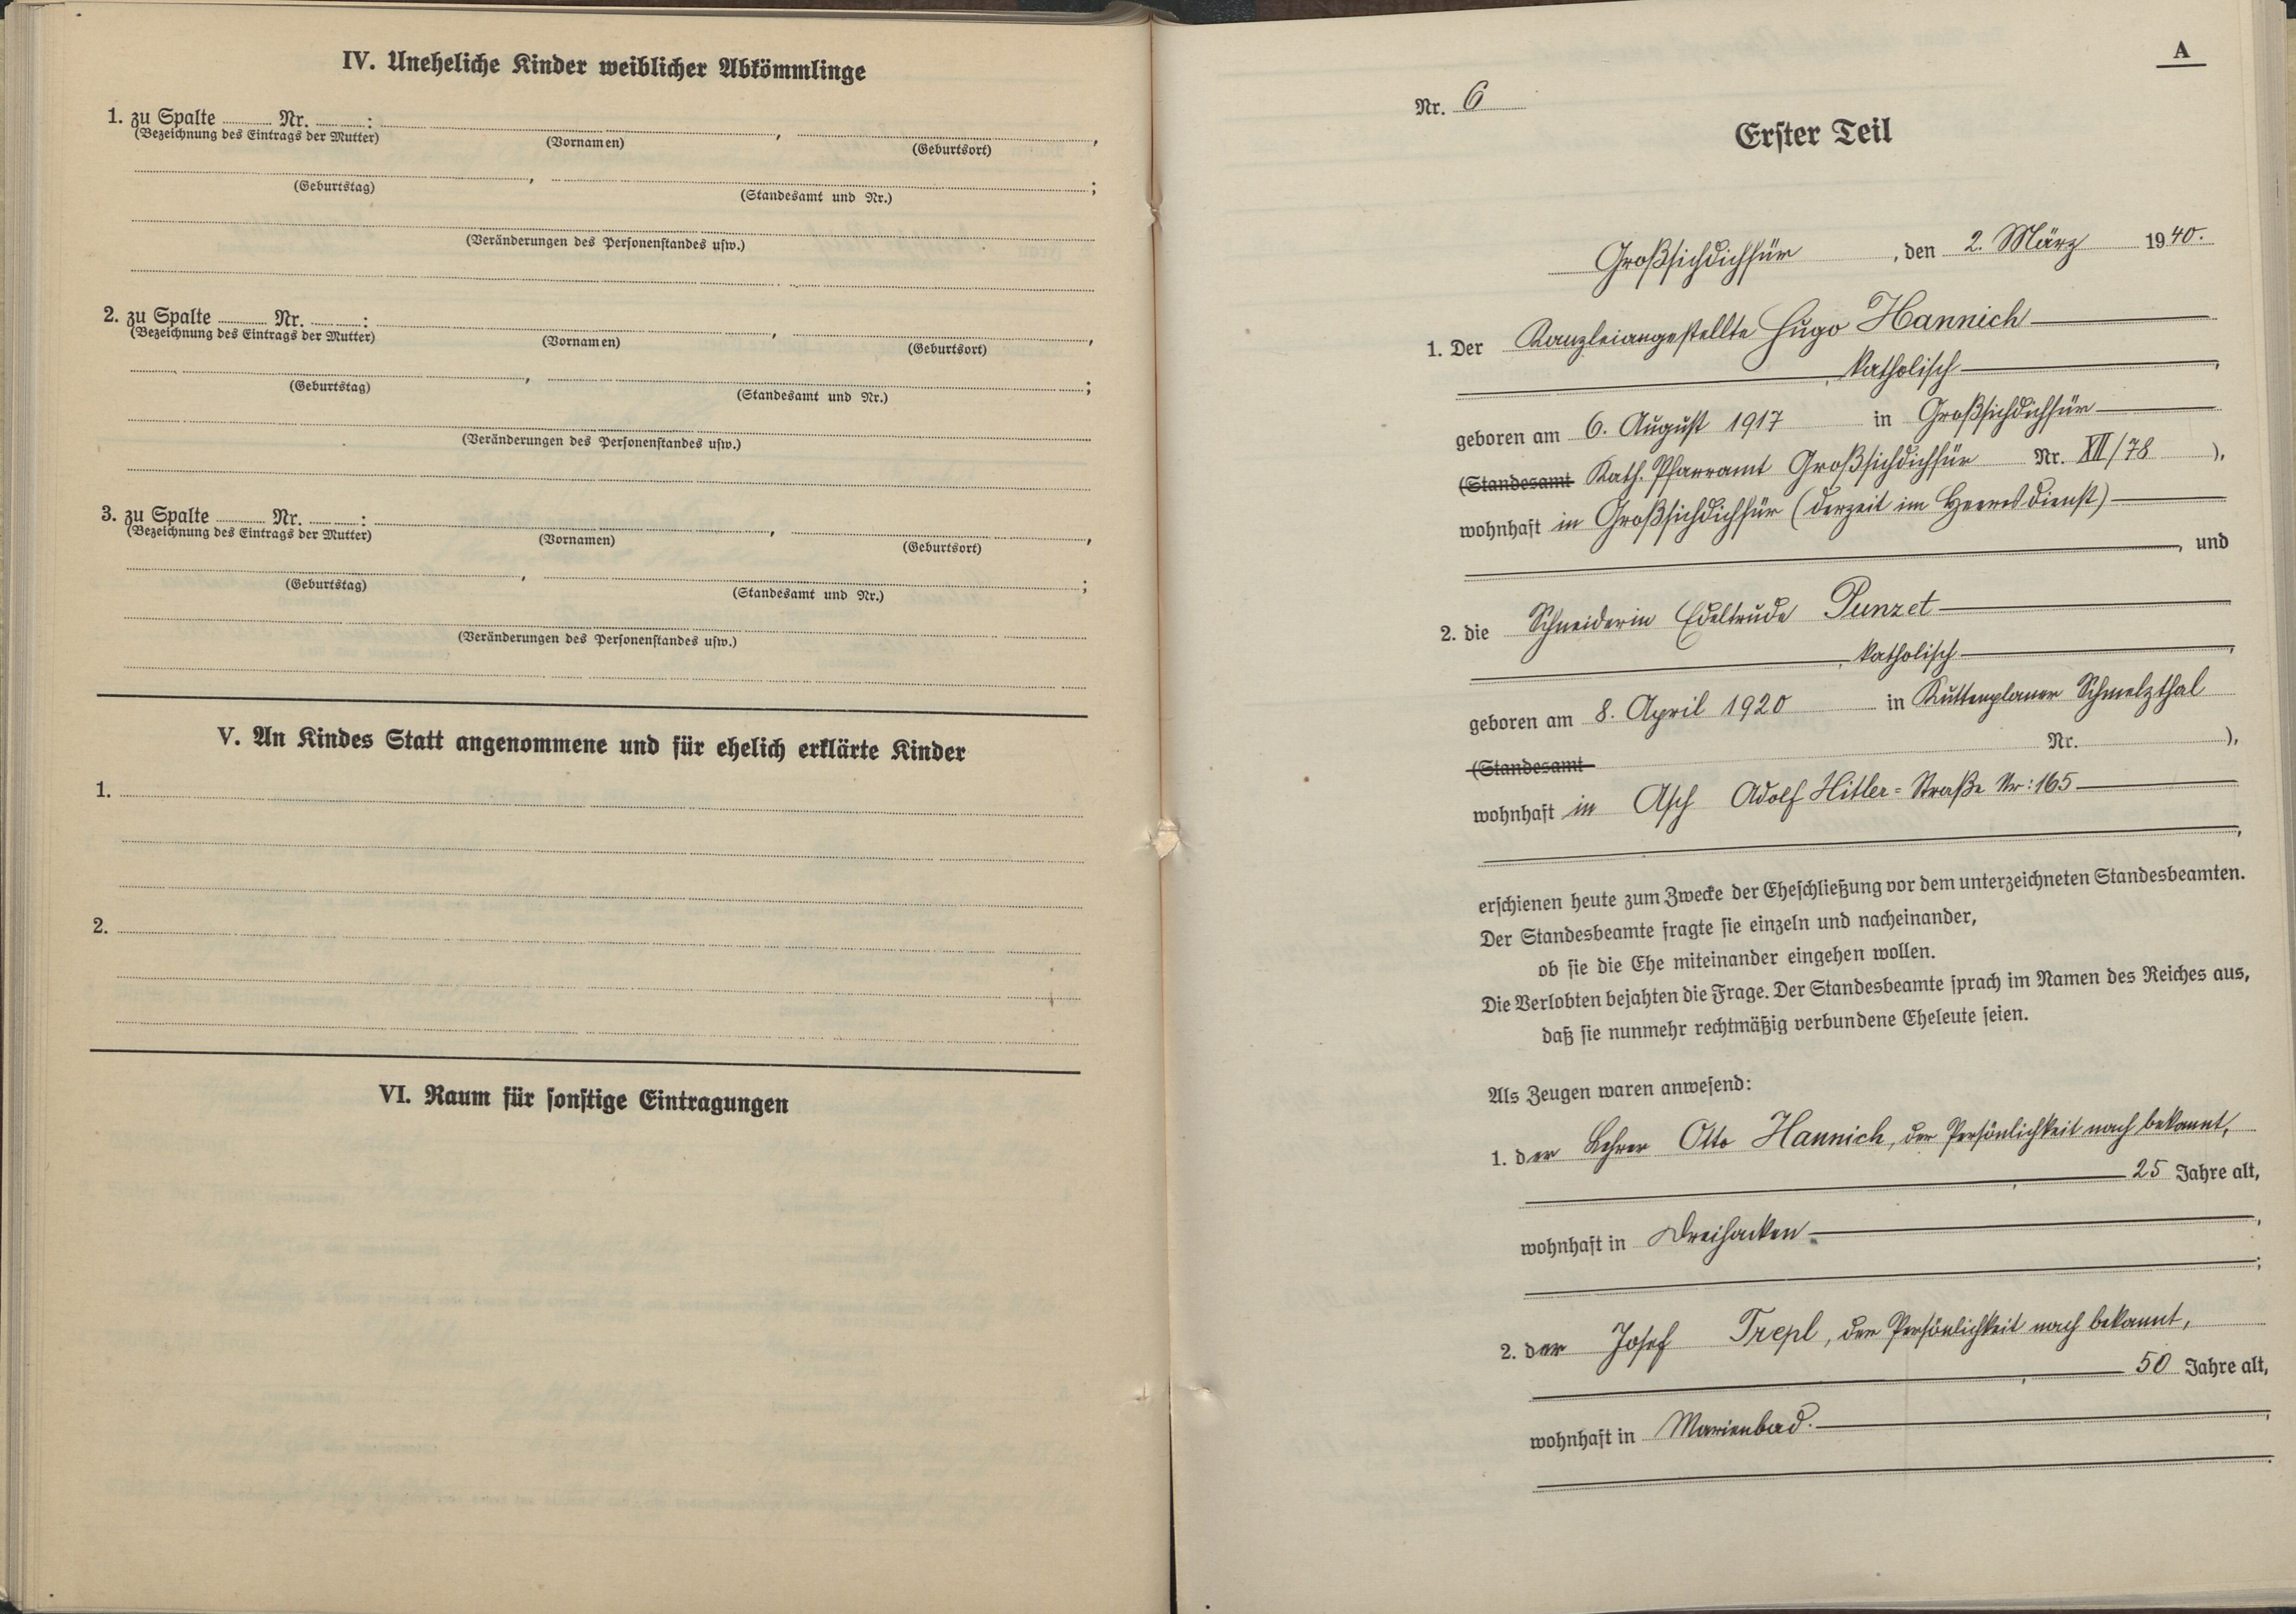 IV. Uneheliche Kinder weiblicher Abkömmlinge
1. zu Spalte ........ Nr. ........:
(Bezeichnung des Eintrags der Mutter) (Vornamen) , (Geburtsort) ,
(Geburtstag) , (Standesamt und Nr.) ;
(Veränderungen des Personenstandes usw.)
2. zu Spalte ........ Nr. ........:
(Bezeichnung des Eintrags der Mutter) (Vornamen) , (Geburtsort) ,
(Geburtstag) , (Standesamt und Nr.) ;
(Veränderungen des Personenstandes usw.)
3. zu Spalte ........ Nr. ........:
(Bezeichnung des Eintrags der Mutter) (Vornamen) , (Geburtsort) ,
(Geburtstag) , (Standesamt und Nr.) ;
(Veränderungen des Personenstandes usw.)
V. An Kindes Statt angenommene und für ehelich erklärte Kinder
1.
2.
VI. Raum für sonstige Eintragungen
A
Nr. 6
Erster Teil
Großsichdichfür , den 2. März 1940.
1. Der Kanzleiangestellte Hugo Hannich
, katholisch ,
geboren am 6. August 1917 in Großsichdichfür
(Standesamt Kath. Pfarramt Großsichdichfür Nr. XII/78 ),
wohnhaft in Großsichdichfür (derzeit im Heeresdienst)
, und
2. die Schneiderin Edeltrude Punzet
, katholisch ,
geboren am 8. April 1920 in Kuttenplaner Schmelzthal
(Standesamt Nr. ),
wohnhaft in Asch Adolf Hitler=Straße Nr: 165
,
erschienen heute zum Zwecke der Eheschließung vor dem unterzeichneten Standesbeamten.
Der Standesbeamte fragte sie einzeln und nacheinander,
ob sie die Ehe miteinander eingehen wollen.
Die Verlobten bejahten die Frage. Der Standesbeamte sprach im Namen des Reiches aus,
daß sie nunmehr rechtmäßig verbundene Eheleute seien.
Als Zeugen waren anwesend:
1. der Lehrer Otto Hannich, der Persönlichkeit nach bekannt,
, 25 Jahre alt,
wohnhaft in Dreihacken ,
;
2. der Josef Trepl, der Persönlichkeit nach bekannt,
, 50 Jahre alt,
wohnhaft in Marienbad. ,